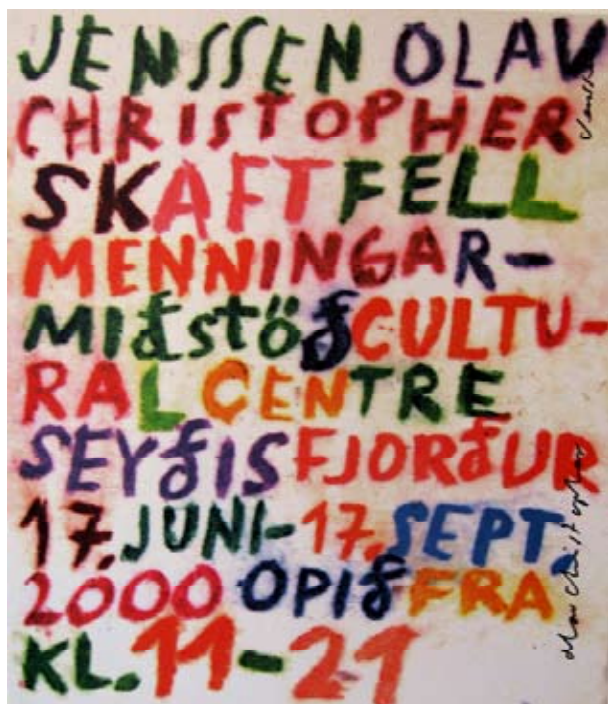 JENSSEN OLAV
CHRISTOPHER
SKAFTFELL
MENNINGAR-
MIðstöð CULTU-
RAL CENTRE
SEYðIS FJORðUR
17. JUNI- 17. SEPT.
2000 OPIð FRA
KL. 11-21
Olav Christopher